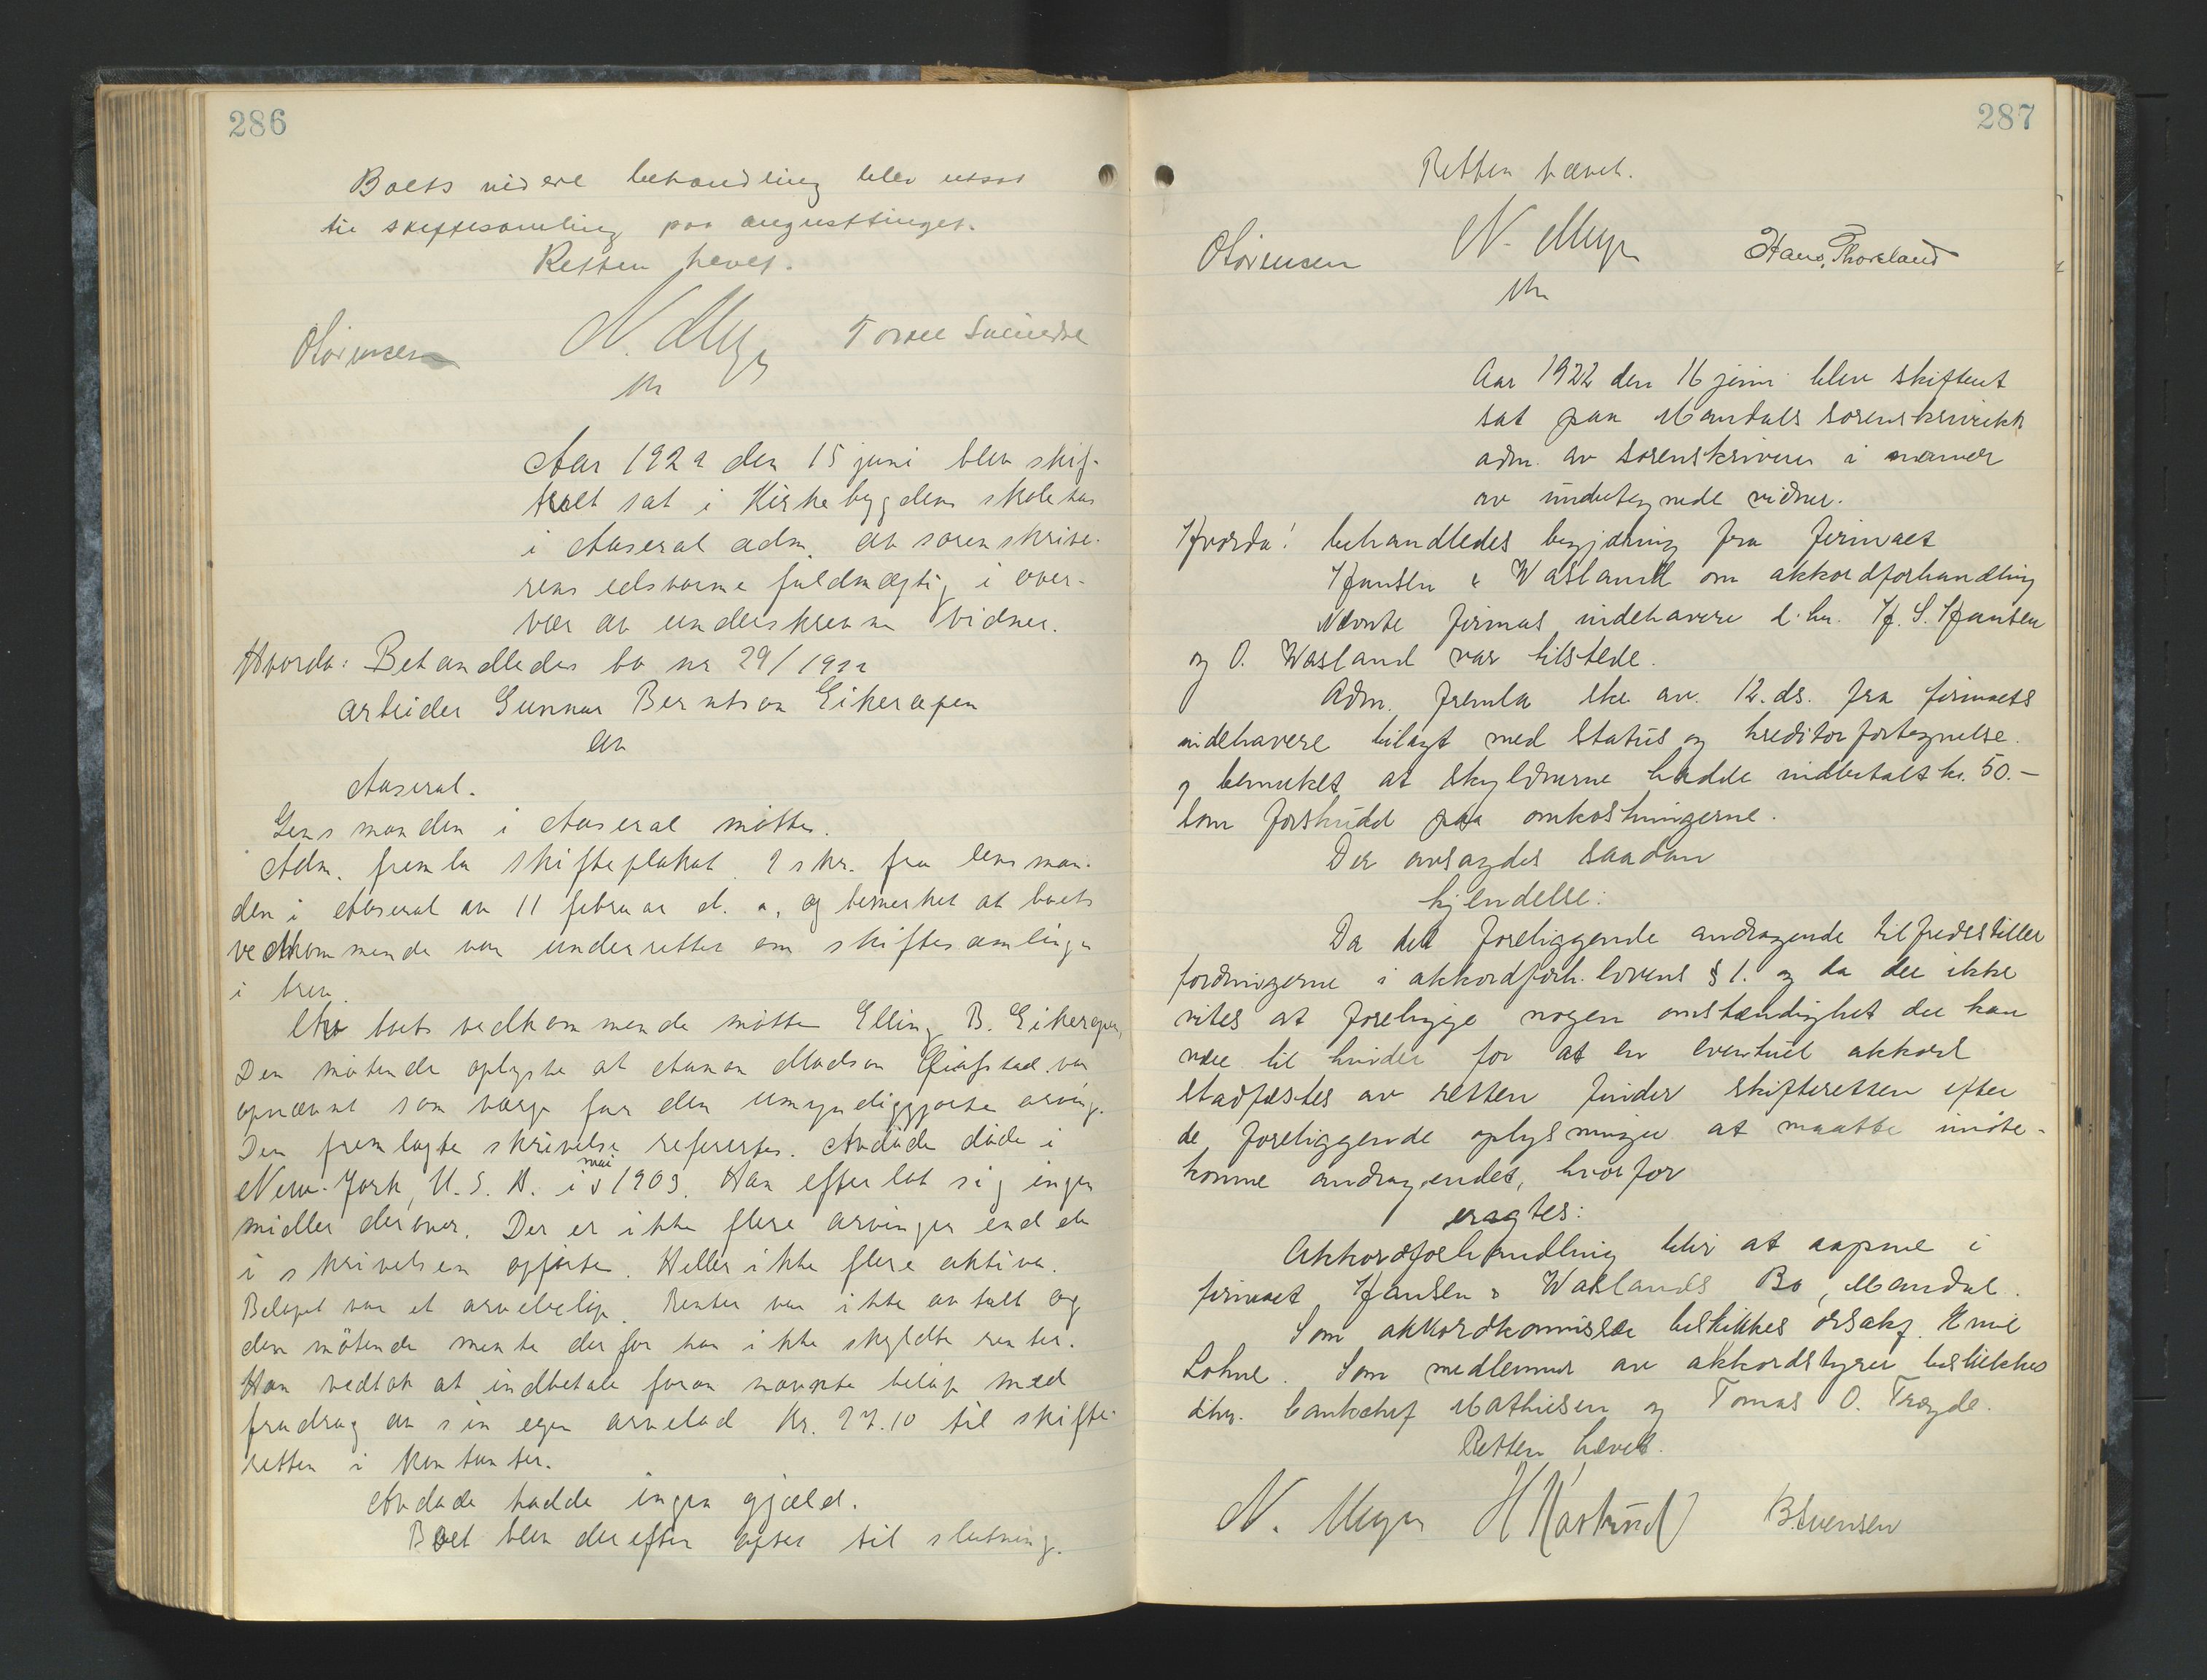 286
Boets videre behandling blev utsat
til skiftesamling paa augusttinget.
Retten hevet.
N. Meyer
Aar 1922 den 15 juni blev skif-
teret sat i Kirkebygdens skolehus
i Aaseral adm. av sorenskrive-
rens edsvorne fuldmægtig i over-
vær av underskrevne vidner.
Hvorda: Behandledes bo nr 29/1922
arbeider Gunnar Berntson Eikerapen
av
Aaseral.
Lensmanden i Aaseral møtte.
Adm. fremla skifteplakat. 1 skr. fra lensman-
den i Aaseral av 11 februar d. a. og bemerket at boets
vedkommende var underrettet om skiftesamlingen
i brev.
Av boets vedkommende møtte Elling B. Eikerapen
Den møtende oplyste at Aanon Madson var
opnævnt som værge for den umyndiggjorte arving.
Den fremlagte skrivelse refereres. Avdøde døde i
New-York, U.S.A. i mai 1903. Han efterlot sig ingen
midler derover. Der er ikke flere arvinger end de
i skrivelsen opførte. Heller ikke flere aktiva.
Beløpet var et arvebeløp. Renter var ikke avtalt og
den møtende mente derfor han ikke skyldte renter.
Han vedtok at indbetale foran nævnte beløp med
fradrag av sin egen arvelod Kr. 27.10 til skifte-
retten i kontanter.
Avdøde hadde ingen gjæld.
Boet blev derefter optat til slutning.
287
Retten hævet.
N. Meyer
Hans Thoreland
Aar 1922 den 16 juni blev skifteret
sat paa Mandals sorenskriverk.
adm. av sorenskriveren i nærvær
av undertegnede vidner.
Hvorda: behandledes begjæring fra firmaet
Hansen & Wasland om akkordforhandling
Nævnte firmas indehavere d.hr. H. S. Hansen
og O. Wasland var tilstede.
Adm. fremla skr. av 12. ds. fra firmaets
indehavere bilagt med status og kreditorfortegnelse.
og bemerket at skyldnerne hadde indbetalt kr. 50.-
som forskudd paa omkostningerne.
Der avsagdes saadan
kjendelse:
Da det foreliggende andragende tilfredsstiller
fordringerne i akkordforh.lovens § 1. og da det ikke
vites at foreligge nogen omstændighet der kan
være til hinder for at en eventuel akkord
stadfæstes av retten finder skifteretten efter
de foreliggende oplysninger at maatte imøte-
komme andragendet, hvorfor
eragtes:
Akkordforhandling blir at aapne i
firmaet Hansen & Waslands Bo, Mandal.
Som akkordkommissær beskikkes o.r.sakf. Emil
Lohne. Som medlemmer av akkordstyret beskikkes
d.hr. banksjef Mathiesen og Tomas O. Trægde.
Retten hævet.
N. Meyer
B. Evensen